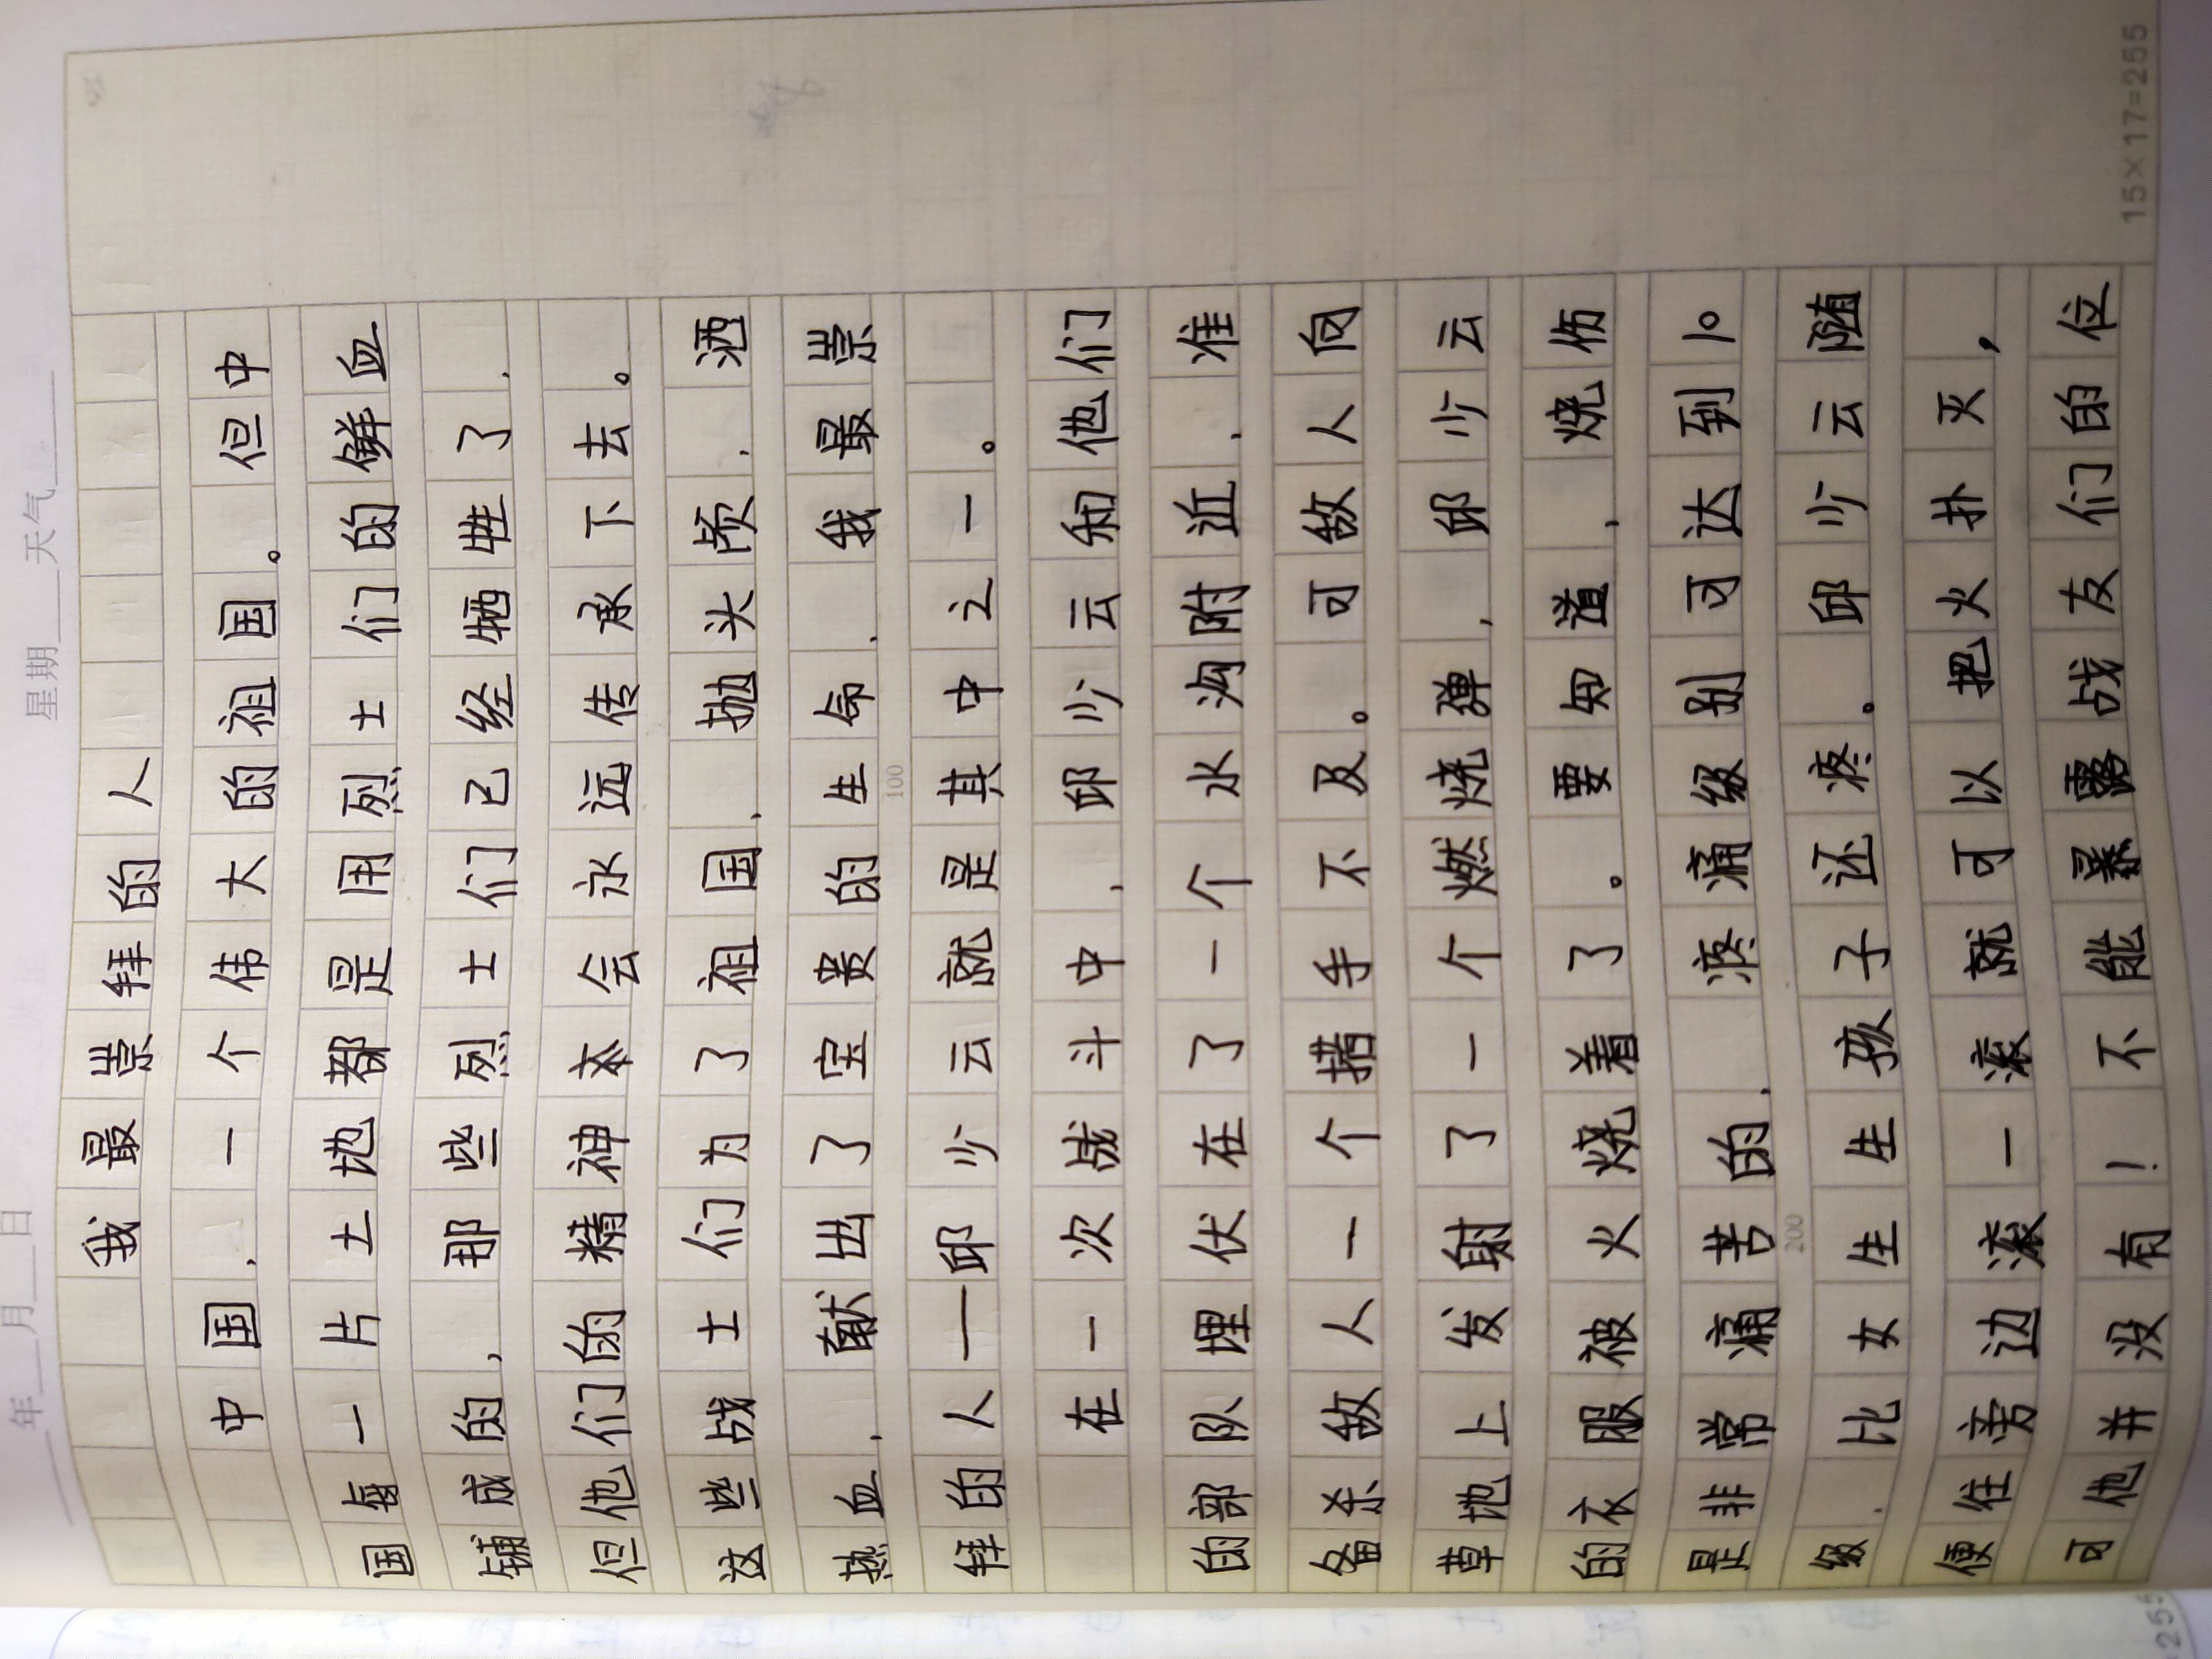 年 月 日 星期 天气
我最崇拜的人
中国，一个伟大的祖国。但中
国每一片土地都是用烈士们的鲜血
铺成的，那些烈士们已经牺牲了，
但他们的精神会永远传承下去。
这些战士们为了祖国，抛头颅，洒
热血，献出了宝贵的生命，我最崇
100
拜的人——邱少云就是其中之一。
在一次战斗中，邱少云和他们
的部队埋伏在了一个水沟附近，准
备杀敌人一个措手不及。可敌人向
草地上发射了一个燃烧弹，邱少云
的衣服被火烧着了。要知道，烧伤
是非常痛苦的，疼痛级别可达到10
200
级，比女生生孩子还疼。邱少云随
便往旁边滚一滚就可以把火扑灭，
可他并没有！不能暴露战友们的位
15×17=255
255